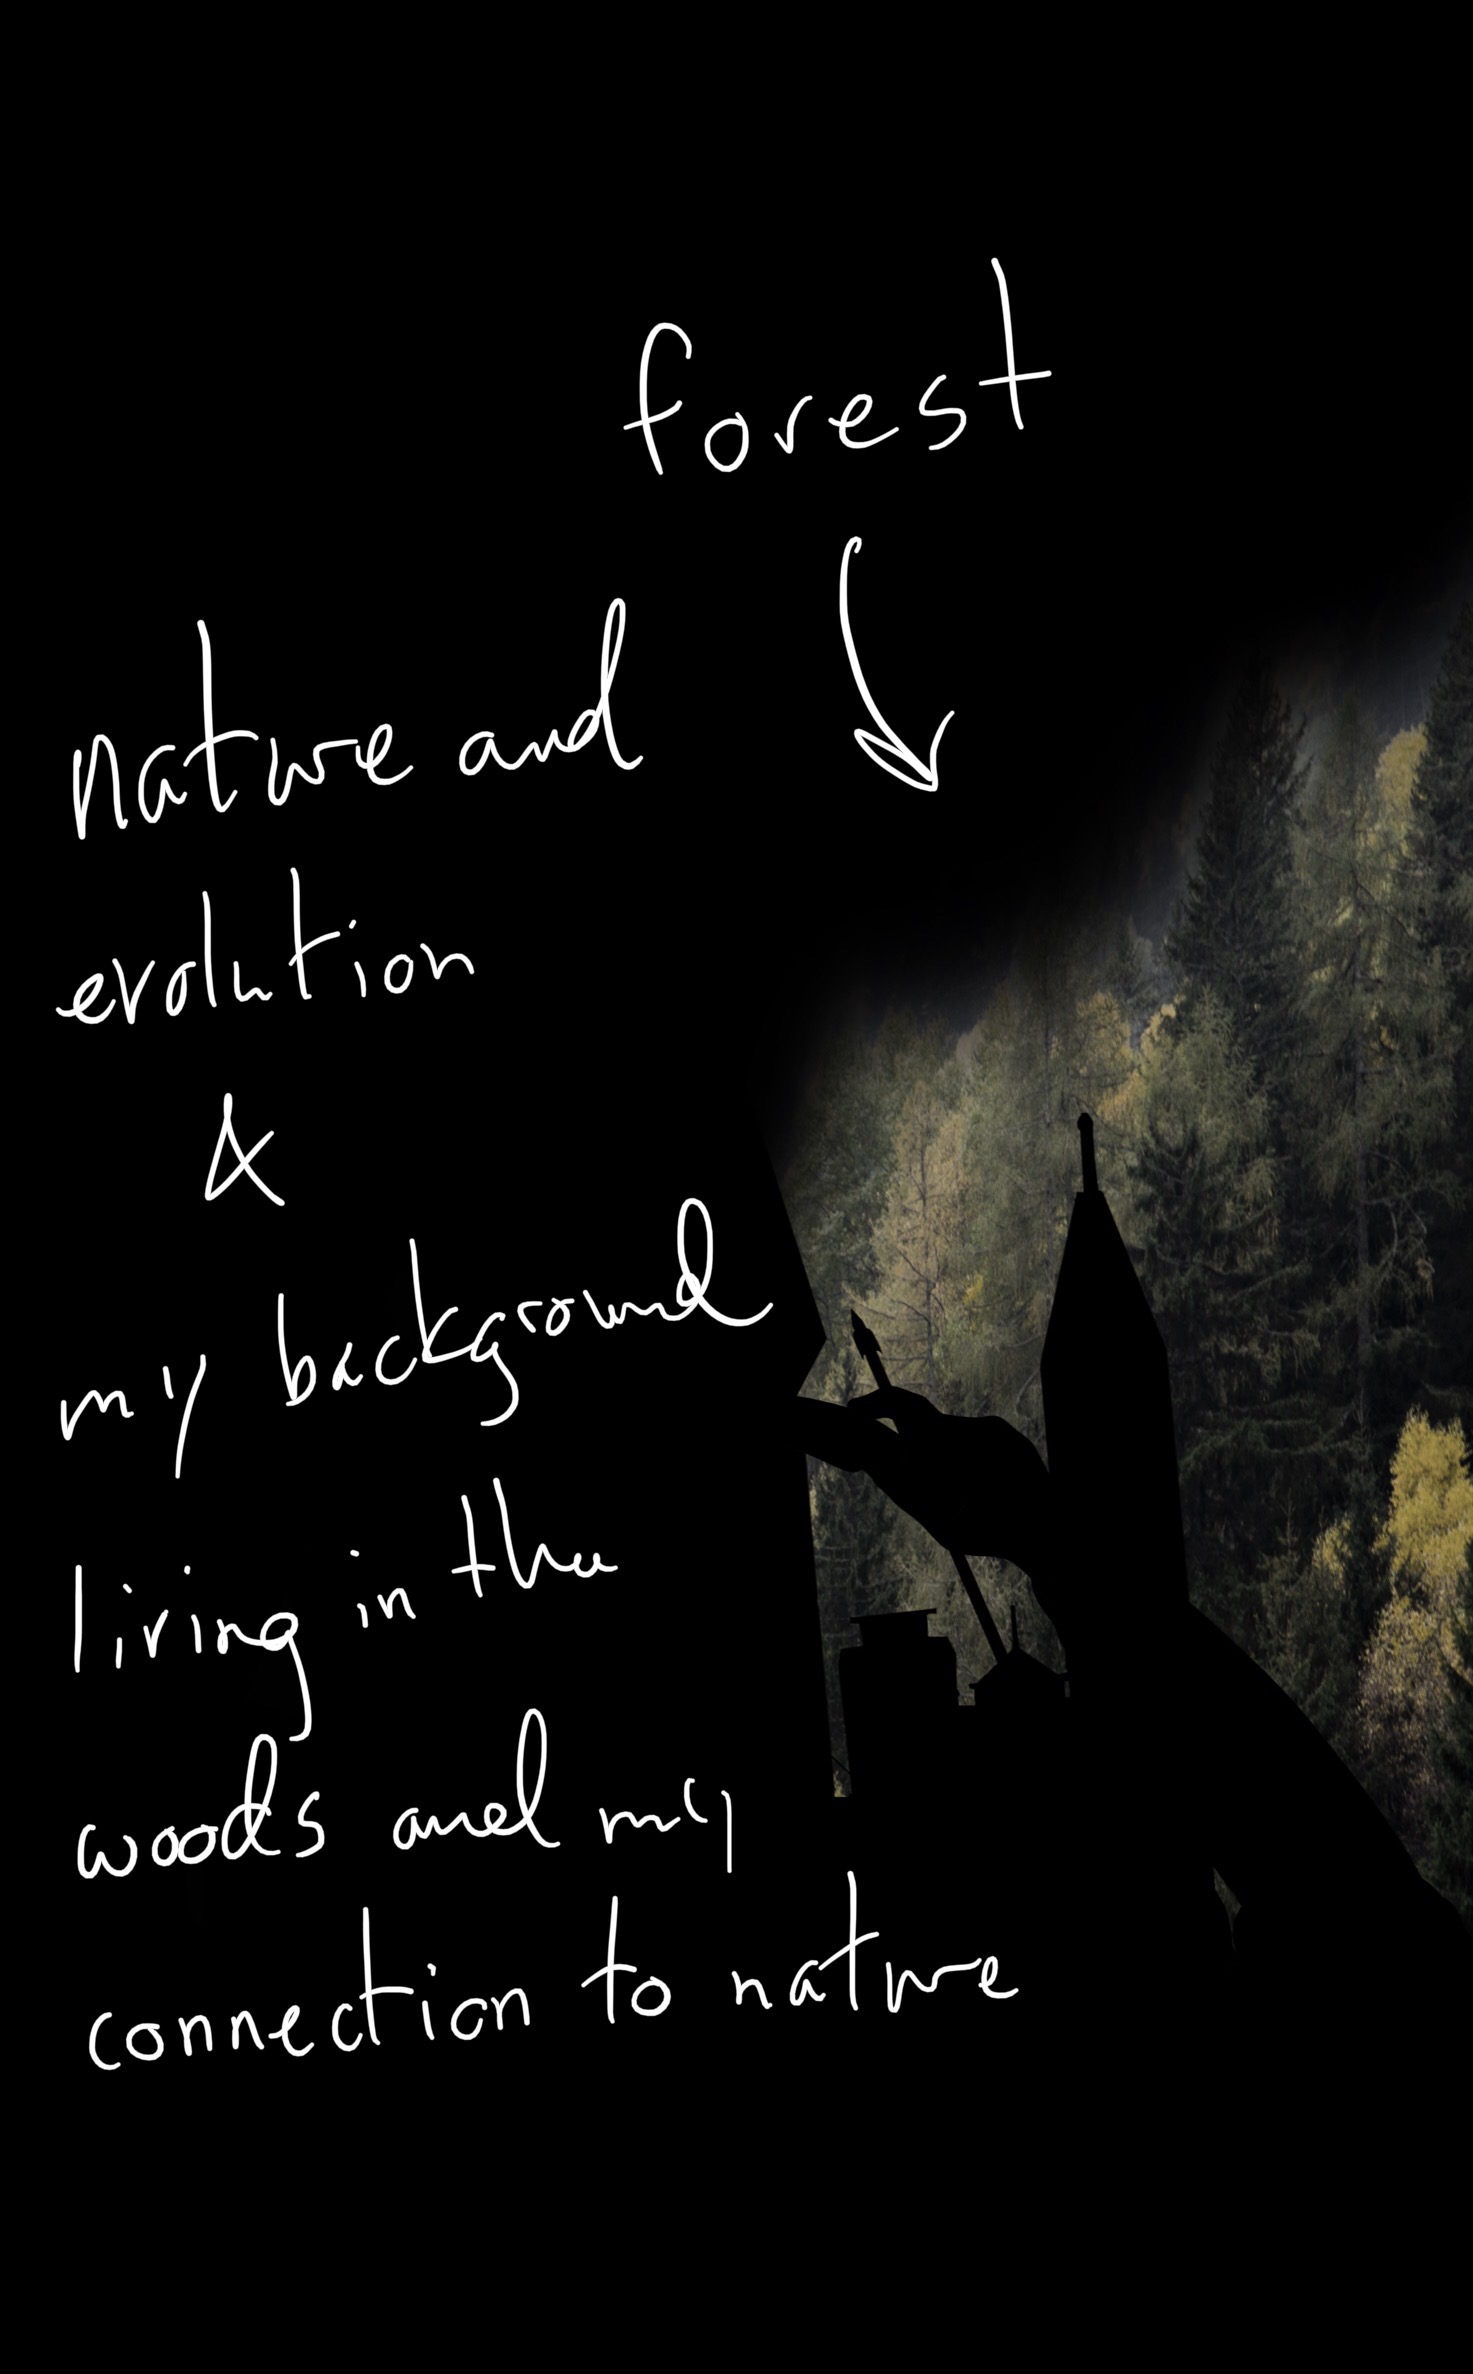 forest
nature and
evolution
&
my background
living in the
woods and my
connection to nature